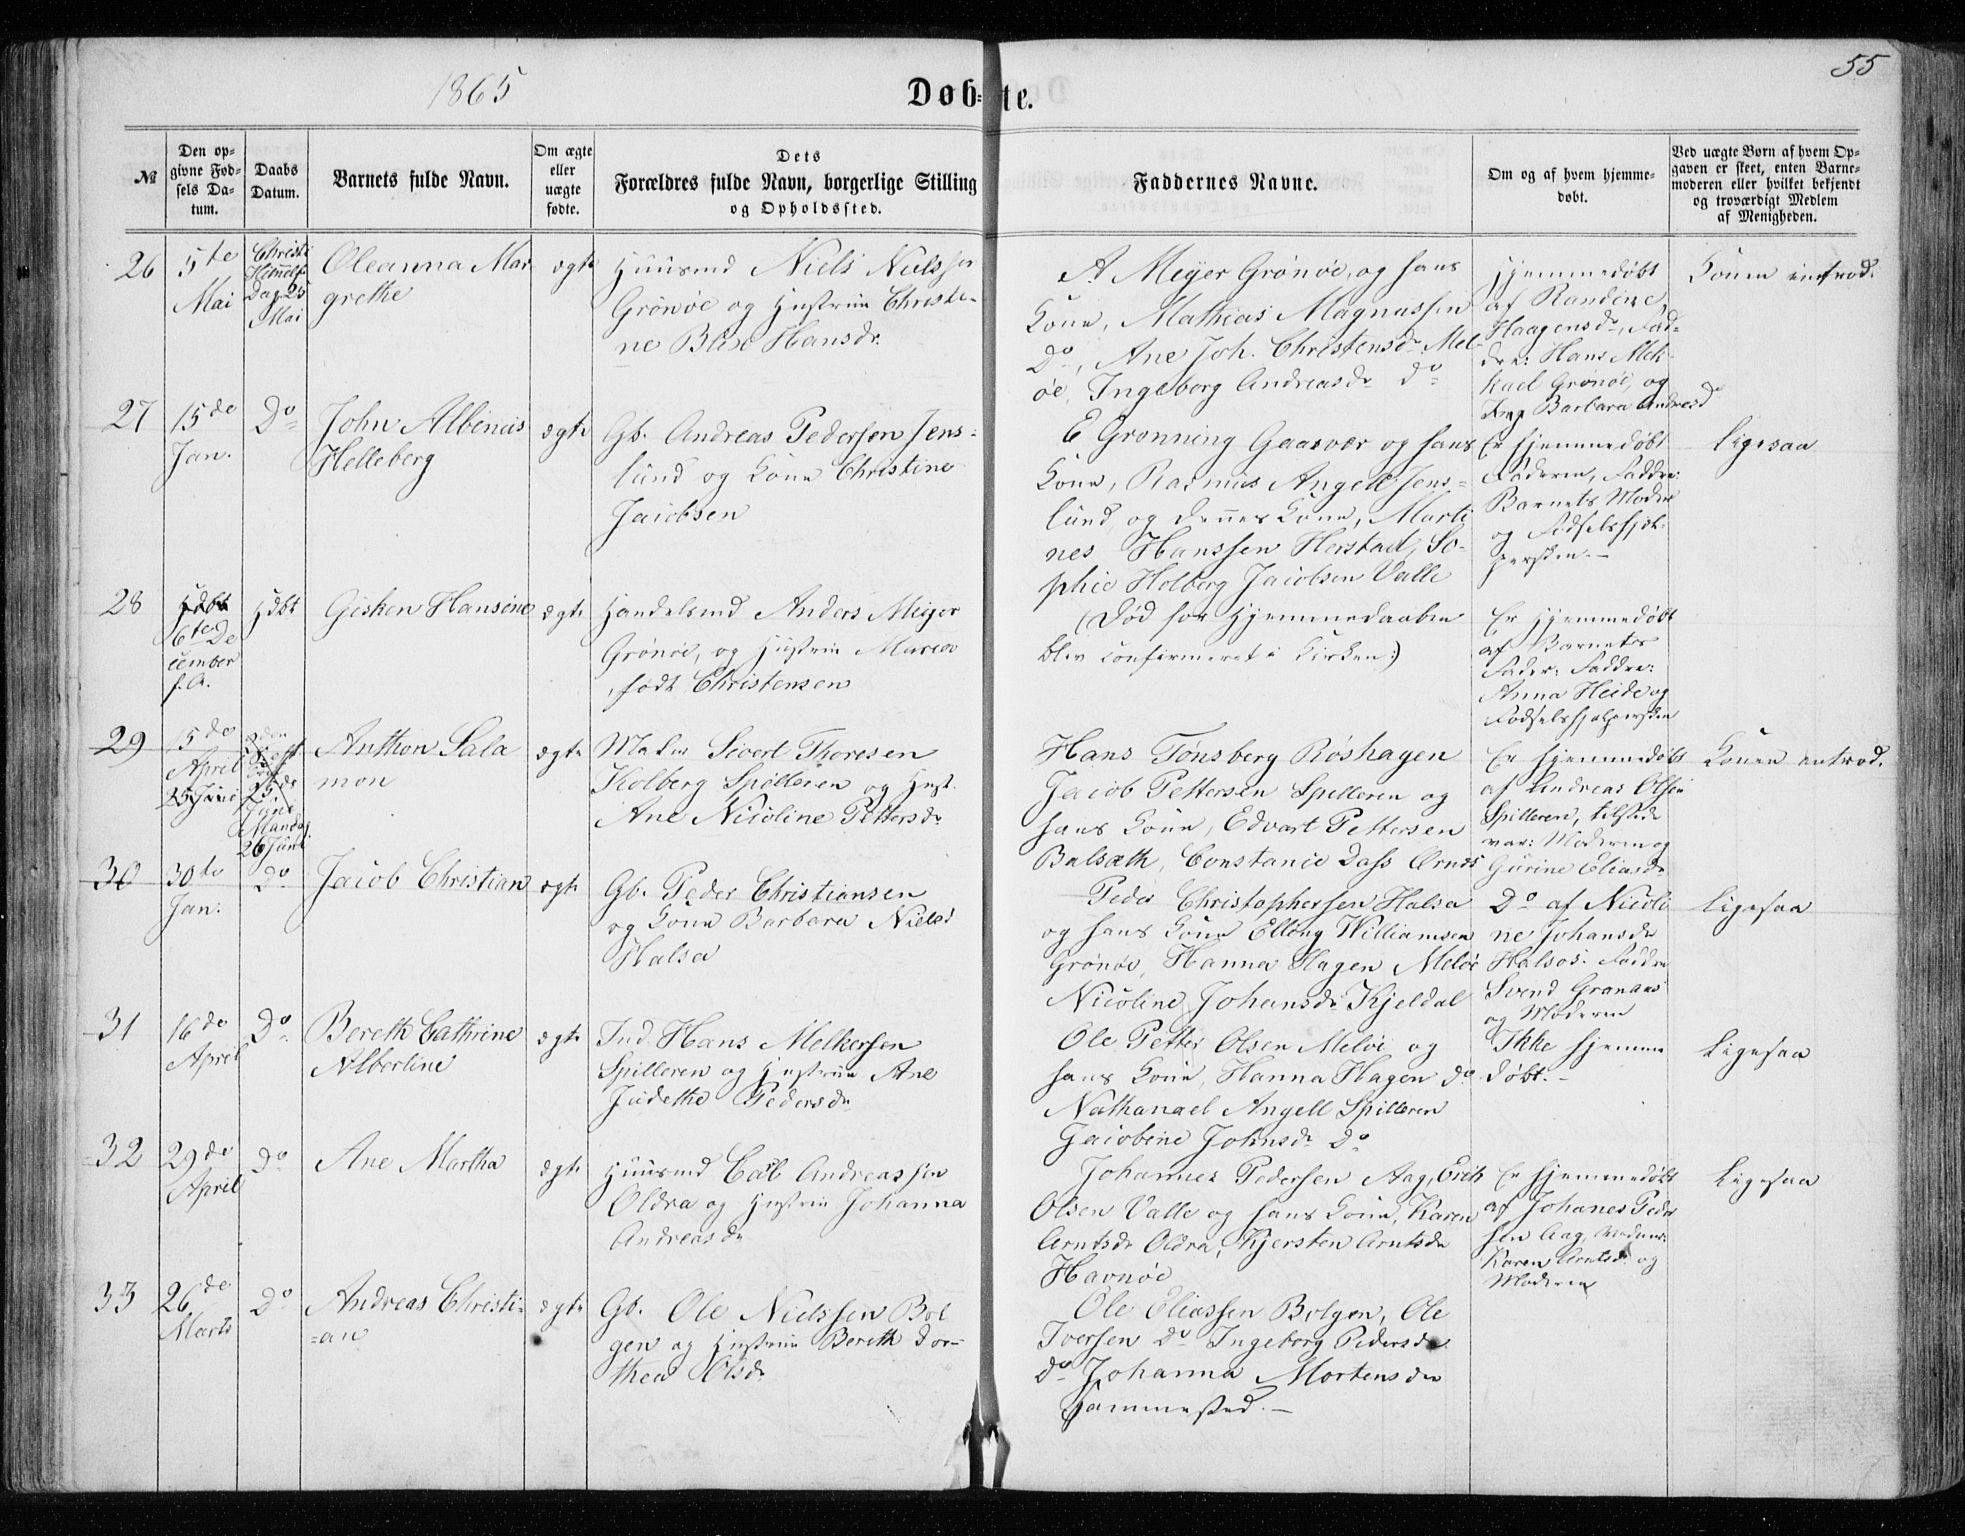 1865
Døb=te.
55
№
Den op=
givne Fød=
sels Da=
tum.
Daabs
Datum.
Barnets fulde Navn.
Om ægte
eller
uægte
fødte.
Dets
Forældres fulde Navn, borgerlige Stilling
og Opholdssted.
Faddernes Navne.
Om og af hvem hjemme=
døbt.
Ved uægte Børn af hvem Op=
gaven er skeet, enten Barne=
moderen eller hvilket bekjendt
og troværdigt Medlem
af Menigheden.
26
5te
Mai
Christi
Himmelf
Dag 25
Mai
Oleanna Mar
grethe
ægte
Huusmd Niels Nielssen
Grønøe og Hustrue Christi=
ne Blix Hansdr.
A. Meyer Grønøe, og hans
Kone, Mathias Magnussen
Do, Ane Joh. Christensdr Mel
øe, Ingeborg Andreasdr Do
Hjemmedøbt
af Randine
Haagensdr, Fad=
dre: Hans Mek
kael Grønøe, og
Barbara Andreasd
Konen introd.
27
15de
Jan.
Do
John Albinus
Helleberg
ægte
Gb. Andreas Pedersen Jens=
lund og Kone Christine
Jacobsen
E Grønning Gaasvær og hans
Kone, Rasmus Angell Jens=
lund og dennes Kone, Marti
nes Hanssen Herstad, So=
phie Holberg Jacobsen Valle
Er hjemmedøbt
Faderen, Faddre:
Barnets Moder
og Fødselshjel=
persken.—
Ligesaa
28
Hdbt
6te De
cember
f.A.
Hdbt
Gisken Hansine
ægte
Handelsmd Anders Meyer
Grønøe, og Hustrue Maren
født Christensen
(Død før Hjemmedaaben
blev confirmeret i Kirken:)
Er hjemmedøbt
af Barnets
Fader: Faddre:
Anna Heide og
Fødselshjelpersken
29
15de
April
25 Juni
25de
Juni
Mandag
26 Juni
Anthon Sala
mon
ægte
Maler Sivert Thoresen
Kolberg Spilderen og Hust.
Ane Nicoline Pettersdr
Hans Tønsberg Røshagen
Jacob Pettersen Spilderen og
hans Kone, Edvart Pettersen
Balsæth, Constance Dass Ørnes
Er hjemmedøbt
af Andreas Olsen
Spilderen, tilstede
var: Moderen og
Gurine Eliasdr
Konen introd.
30
30te
Jan.
Do
Jacob Christian
ægte
Gb. Peder Christiansen
og Kone Barbara Nielsd
Halsa
Peder Christophersen Halsa
og hans Kone Ellong Williamsen
Grønøe, Hanna Hagen Meløe
Nicoline Johansdr Kjeldal
Do af Nicoli
ne Johansdr
Halsos. Faddre
Svend Granaas
og Moderen
Ligesaa
31
16de
April
Do
Bereth Cathrine
Albertine
ægte
Ind. Hans Melkersen
Spilderen og Hustrue Ane
Judethe Pedersdr
Ole Petter Olsen Meløe og
hans Kone, Hanna Hagen do
Nathanael Angell Spilderen
Jacobine Johnsdr Do
Ikke hjemme
døbt.—
Ligesaa
32
29de
April
Do
Ane Martha
ægte
Huusmd Carl Andreassen
Oldra og Hustrue Johanna
Andreasdr
Johannes Pedersen Aag, Erik
Olsen Valle og hans Kone, Karen
Arntsdr Oldra, Kjersten Arntsdr
Havnøe
Er hjemmedøbt
af Johanes Peder
sen Aag,
Karen Arntsdr og
Moderen
Ligesaa
33
26de
Marts
Do
Andreas Christi=
=an
ægte
Gb. Ole Nielssen Bol
gen og Hustrue Bereth Dor=
thea Olsdr
Ole Eliassen Bolgen, Ole
Iversen Do Ingeborg Pedersdr
Do Johanna Mortensdr
Hammersted.—